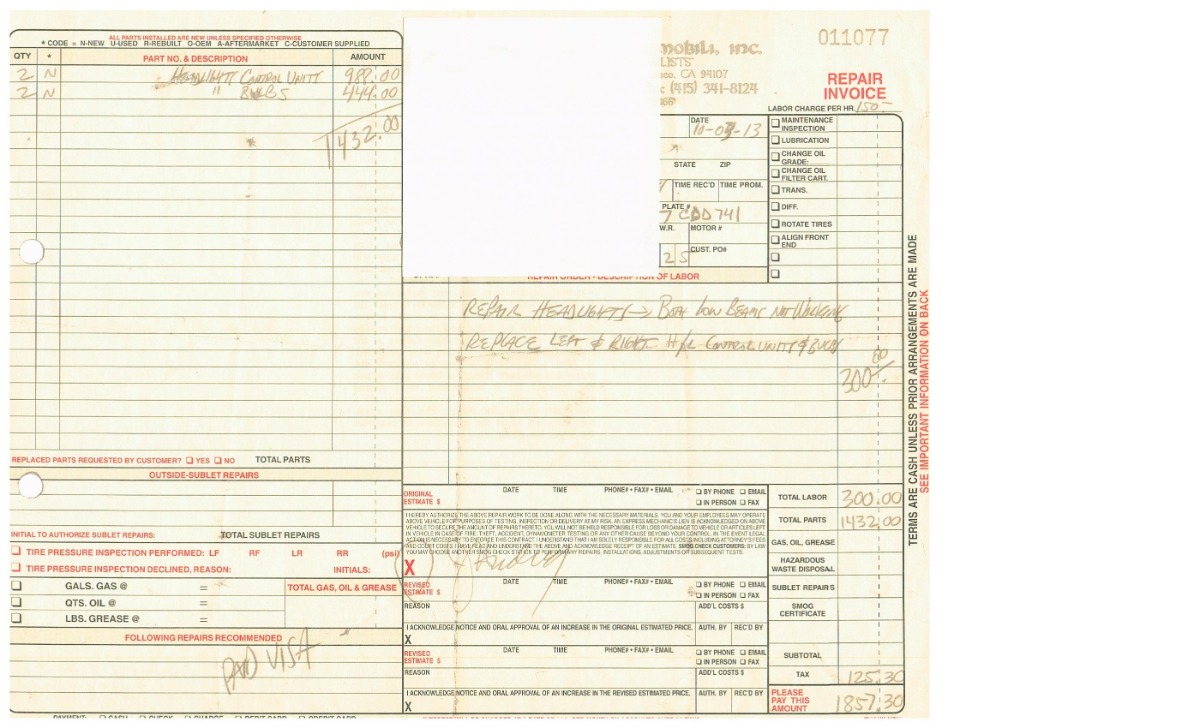 ALL PARTS INSTALLED ARE NEW UNLESS SPECIFIED OTHERWISE
* CODE = N-NEW U-USED R-REBUILT O-OEM A-AFTERMARKET C-CUSTOMER SUPPLIED
QTY * PART NO. & DESCRIPTION AMOUNT
2 N HEADLIGHT CONTROL UNITT 988.00
2 N " BULBS 444.00
1432.00
REPLACED PARTS REQUESTED BY CUSTOMER? YES NO TOTAL PARTS
OUTSIDE-SUBLET REPAIRS
INITIAL TO AUTHORIZE SUBLET REPAIRS: TOTAL SUBLET REPAIRS
TIRE PRESSURE INSPECTION PERFORMED: LF RF LR RR (psi)
TIRE PRESSURE INSPECTION DECLINED, REASON: INITIALS:
GALS. GAS @ = TOTAL GAS, OIL & GREASE
QTS. OIL @ =
LBS. GREASE @ =
FOLLOWING REPAIRS RECOMMENDED
PAID VISA
mobili, inc.
LISTS
co, CA 94107
(415) 341-8124
011077
REPAIR
INVOICE
LABOR CHARGE PER HR. 150-
DATE
STATE ZIP
TIME REC'D TIME PROM.
PLATE #
7 CDD 741
W.R. MOTOR #
25 CUST. PO#
MAINTENANCE
INSPECTION
LUBRICATION
CHANGE OIL
GRADE:
CHANGE OIL
FILTER CART.
TRANS.
DIFF.
ROTATE TIRES
ALIGN FRONT
END
REPAIR ORDER - DESCRIPTION OF LABOR
REPAIR HEADLIGHTS → BOTH LOW BEAMS NOT WORKING
REPLACE LEFT & RIGHT H/L CONTROL UNITT & BULBS
300.00
ORIGINAL
ESTIMATE $ DATE TIME PHONE# • FAX# • EMAIL BY PHONE EMAIL
IN PERSON FAX
X
REVISED
ESTIMATE $ DATE TIME PHONE# • FAX# • EMAIL BY PHONE EMAIL
IN PERSON FAX
REASON ADD'L COSTS $
I ACKNOWLEDGE NOTICE AND ORAL APPROVAL OF AN INCREASE IN THE ORIGINAL ESTIMATED PRICE. AUTH. BY REC'D BY
X
REVISED
ESTIMATE $ DATE TIME PHONE# • FAX# • EMAIL BY PHONE EMAIL
IN PERSON FAX
REASON ADD'L COSTS $
I ACKNOWLEDGE NOTICE AND ORAL APPROVAL OF AN INCREASE IN THE REVISED ESTIMATED PRICE. AUTH. BY REC'D BY
X
TOTAL LABOR 300.00
TOTAL PARTS 1432.00
GAS, OIL, GREASE
HAZARDOUS
WASTE DISPOSAL
SUBLET REPAIRS
SMOG
CERTIFICATE
SUBTOTAL
TAX 125.30
PLEASE
PAY THIS
AMOUNT 1857.30
TERMS ARE CASH UNLESS PRIOR ARRANGEMENTS ARE MADE
SEE IMPORTANT INFORMATION ON BACK